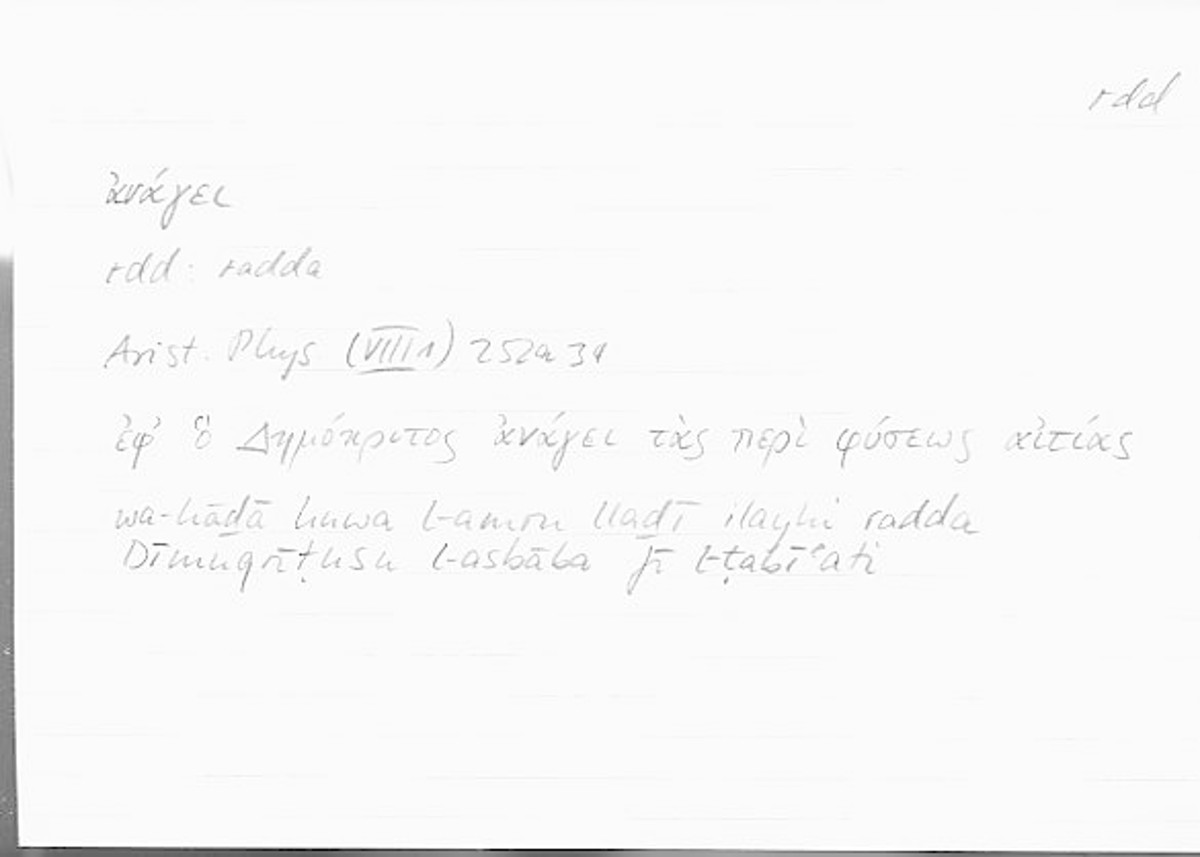 rdd
ἀνάγει
rdd: radda
Arist. Phys (VIII 1) 252a 34
ἐφ’ ὃ Δημόκριτος ἀνάγει τὰς περὶ φύσεως αἰτίας
wa-hāḏā huwa l-amru llaḏī ilayhi radda
Dīmuqrīṭusu l-asbāba fī l-ṭabīʿati